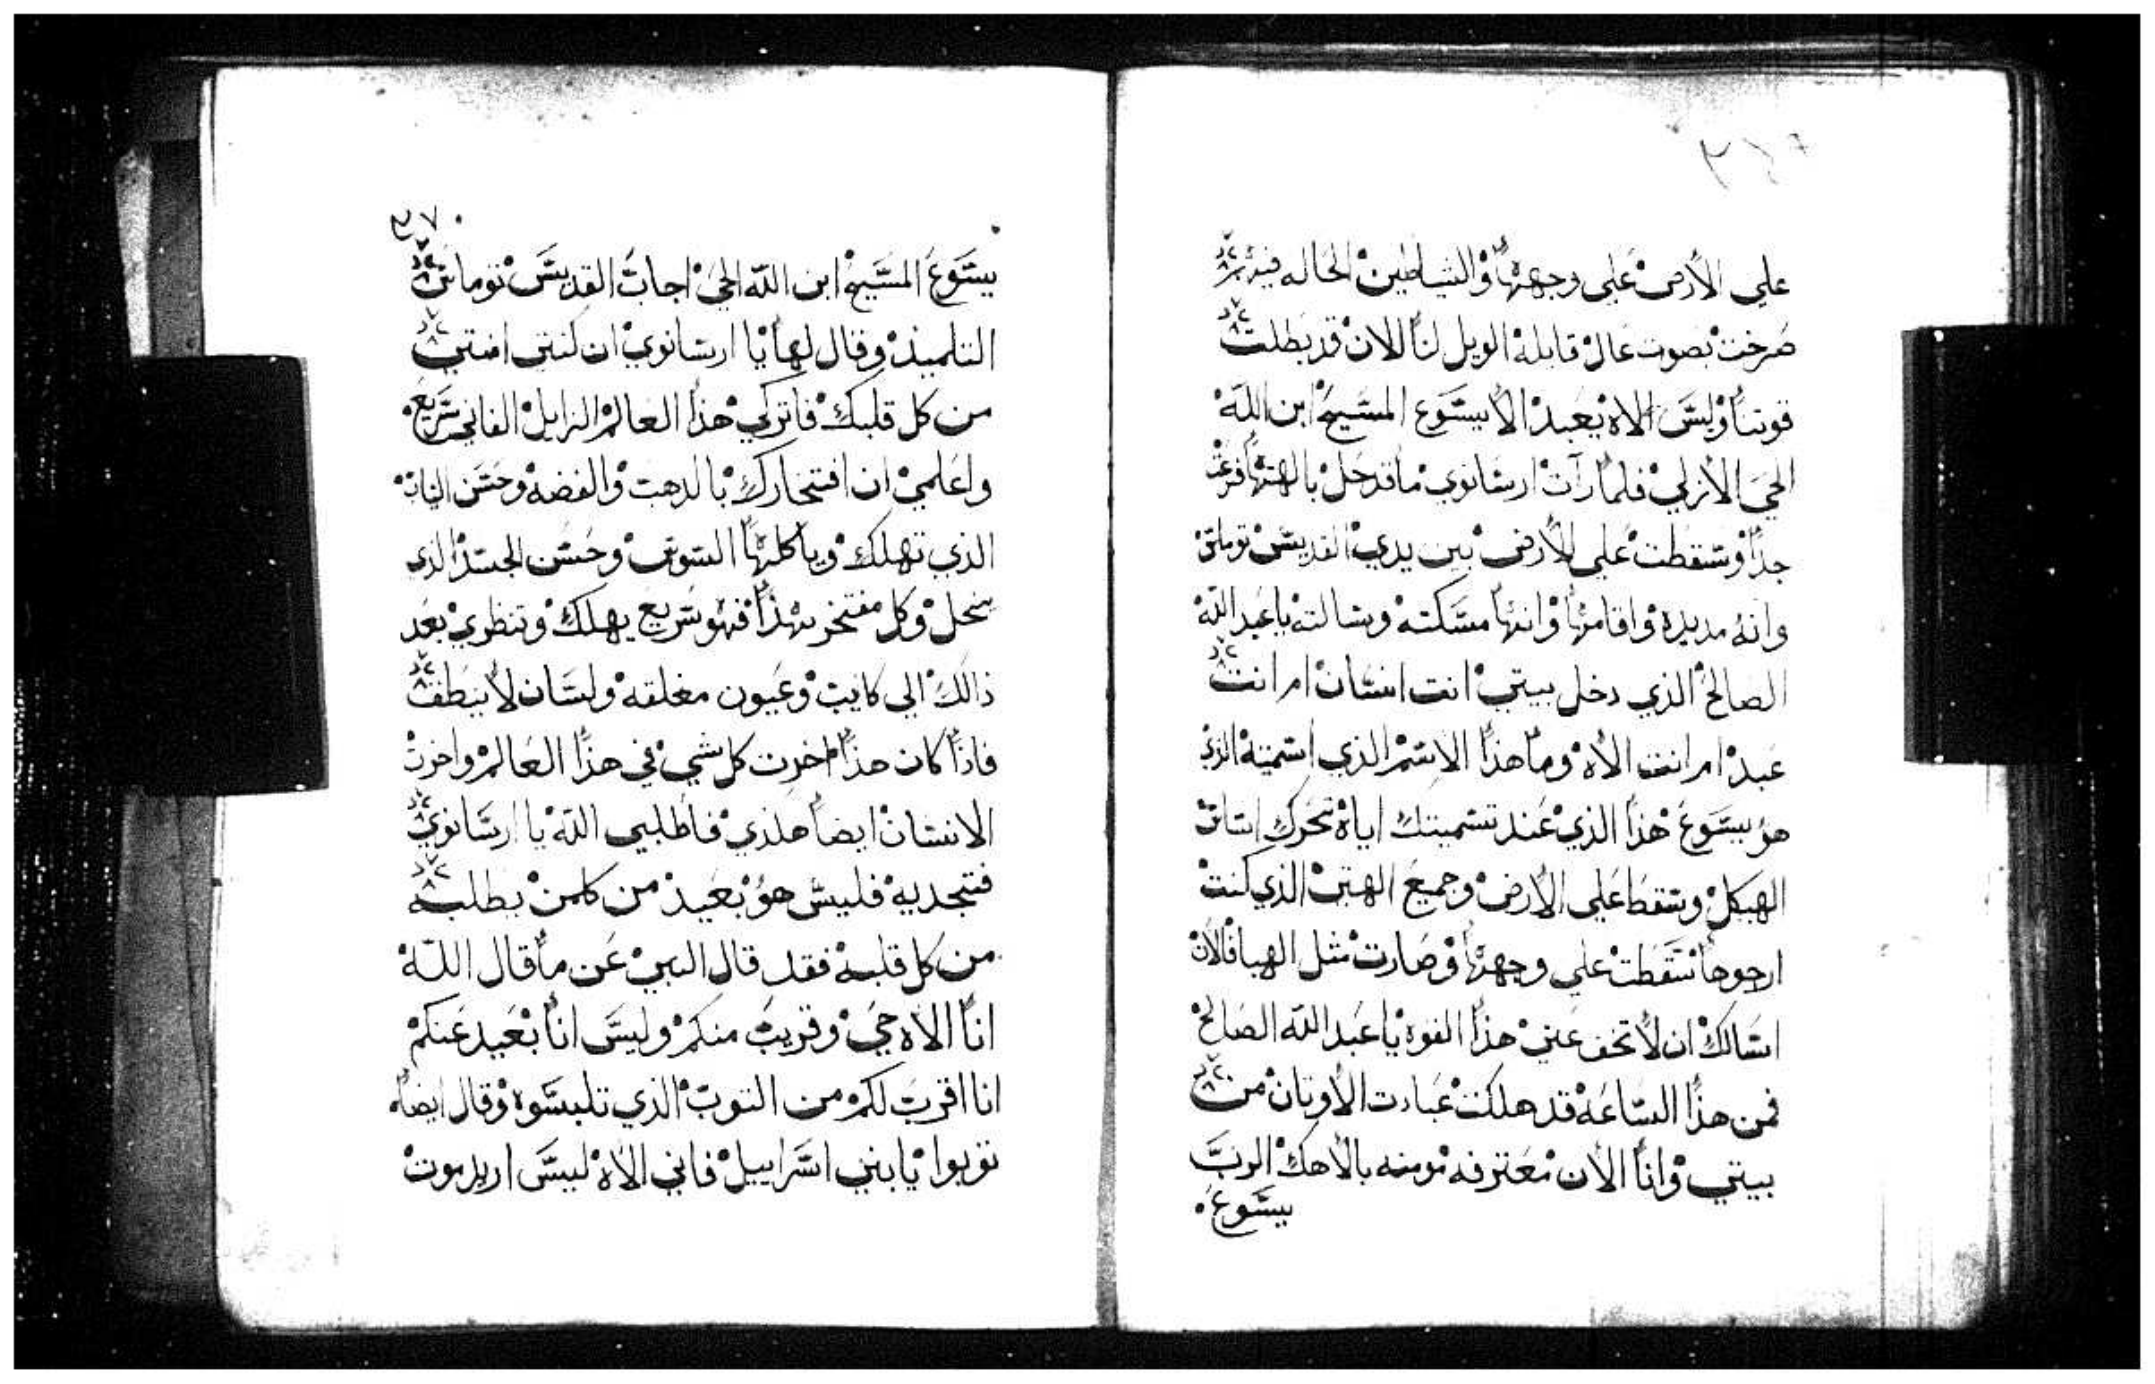 علي الأرض علي وجهها والشياطين الحاله فيهم
صرخت بصوت عال قايله الويل لنا الان قد بطلت
قوتنا وليس الاه يعبد الا يسوع المسيح ابن الله
الحي الأزلي فلما رآت ارسانوي ما قد حل بالهتها فزعت
جدا وسقطت علي الأرض بين يدي القديس توماس
وانه مد يده واقامها وانها مسكته وسالته يا عبد الله
الصالح الذي دخل بيتي انت انسان ام انت
عبد ام انت الاه وما هذا الاسم الذي اسميته الذي
هو يسوع هذا الذي عند تسميتك اياه تحرك اساس
الهيكل وسقط علي الارض وجميع الهتي الذي كنت
ارجوها سقطت علي وجهها وصارت مثل الهبا فالان
اسالك ان لا تخف عني هذا القوه يا عبد الله الصالح
فمن هذا الساعه قد هلكت عبادت الأوتان من
بيتي وانا الان معترفه مومنه بالاهك الرب
يسوع
٢٧٠
يسوع المسيح ابن الله الحي اجاب القديس توماس
التلميذ وقال لها يا ارسانوي ان كنتي امنتي
من كل قلبك فاتركي هذا العالم الزايل الفاني سريع
واعلمي ان افتخارك بالدهب والفضه وحسن التياب
الذي تهلك وياكلها السوس وحسن الجسد الذي
ينحل وكل مفتخر بهذا فهو سريع يهلك وتنظري بعد
ذالك الي كايب وعيون مغلقه ولسان لا ينطق
فاذا كان هذا اخرت كل شي في هذا العالم واخرت
الانسان ايضا هلذي فاطلبي الله يا ارسانوي
فتجديه فليس هو بعيد من كلمن يطلبه
من كل قلبه فقد قال النبي عن ما قال الله
انا الاه حي وقريب منكم وليس انا بعيد عنكم
انا اقرب لكم من التوب الذي تلبسوه وقال ايضا
توبوا يا بني اسراييل فاني الاه ليس اريد موت